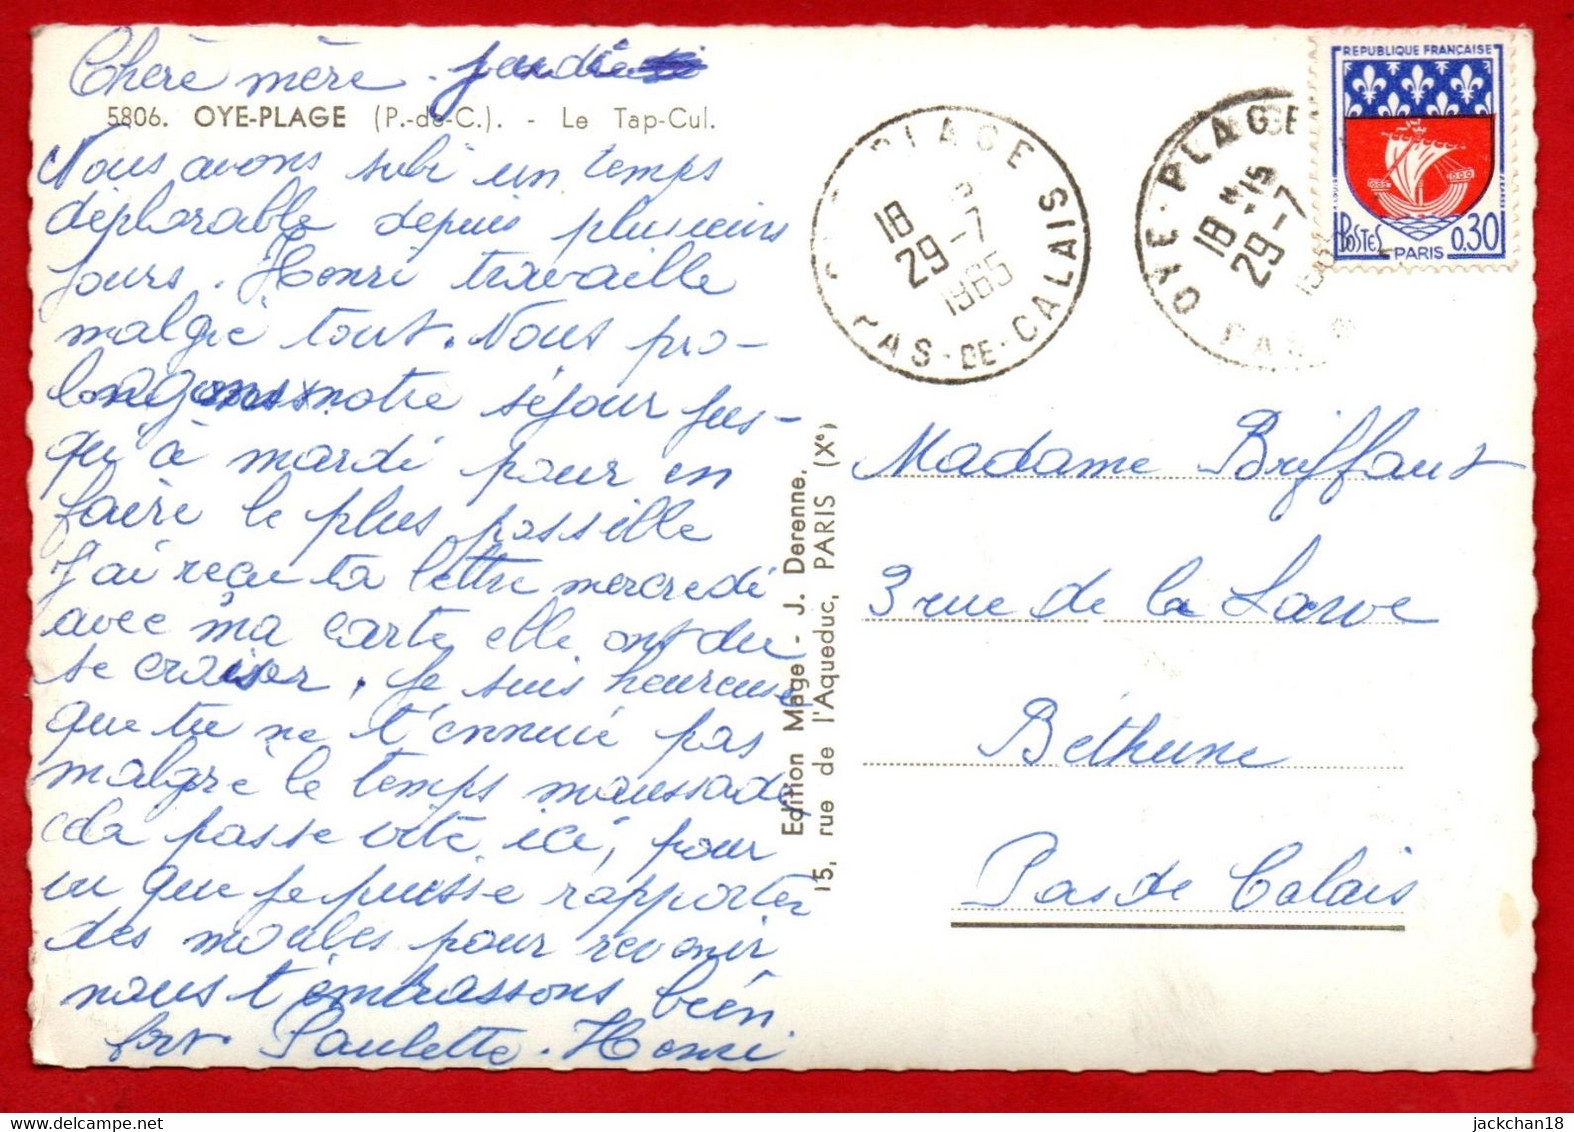 Chère mère. jeudi
5806. OYE-PLAGE (P.-de-C.). - Le Tap-Cul.
Nous avons subi un temps
déplorable depuis plusieurs
jours. Henri travaille
malgré tout. Nous pro-
longeons notre séjour jus-
qu'à mardi pour en
faire le plus possible
J'ai reçu ta lettre mercredi
avec ma carte elle ont du
se croiser. Je suis heureuse
que tu ne t'ennuie pas
malgré le temps maussade
cela passe vite ici, pour
vu que je puisse rapporter
des meubles pour revenir
nous t'embrassons bien
fort Paulette. Henri
Edition Mage - J. Derenne,
15, rue de l'Aqueduc, PARIS (Xe)
PLAGE PAS-DE-CALAIS
18
29-7
1965
OYE-PLAGE PAS
18 H 15
29-7
REPUBLIQUE FRANÇAISE
POSTES PARIS 0,30
Madame Briffaut
3 rue de la Lawe
Béthune
Pas de Calais
jackchan18